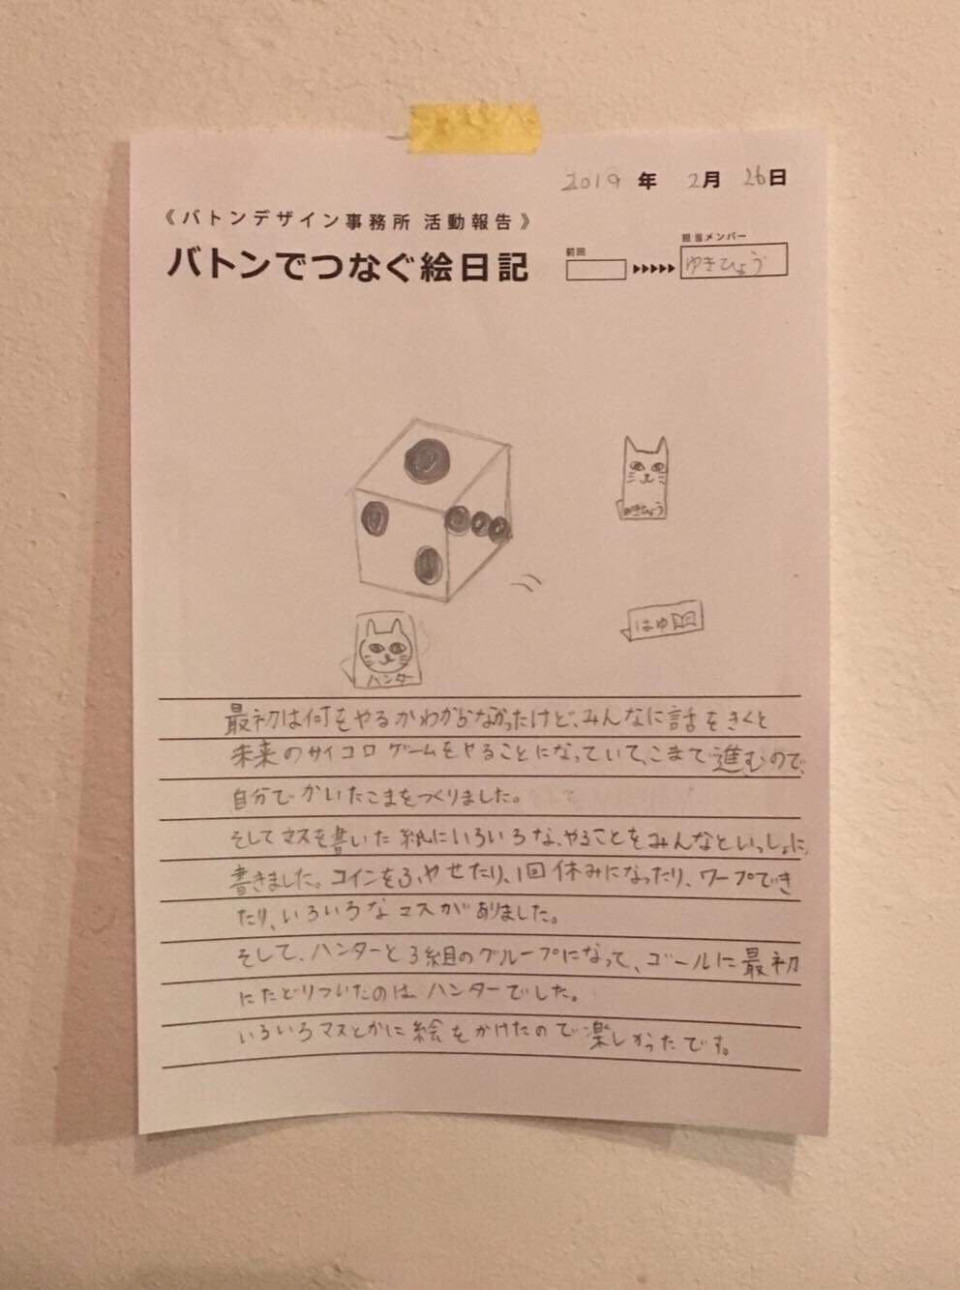 2019 年 2月 26日
《バトンデザイン事務所 活動報告》
バトンでつなぐ絵日記
前回
担当メンバー
ゆきひょう
ゆきひょう
はゆ
ハンター
最初は何をやるかわからなかったけど、みんなに話をきくと
未来のサイコロゲームをやることになっていて、こまで進むので、
自分でかいたこまをつくりました。
そしてマスを書いた紙にいろいろな、やることをみんなといっしょに、
書きました。コインをふやせたり、1回休みになったり、ワープでき
たり、いろいろなマスがありました。
そして、ハンターと3組のグループになって、ゴールに最初
にたどりついたのは、ハンターでした。
いろいろマスとかに絵をかけたので楽しかったです。